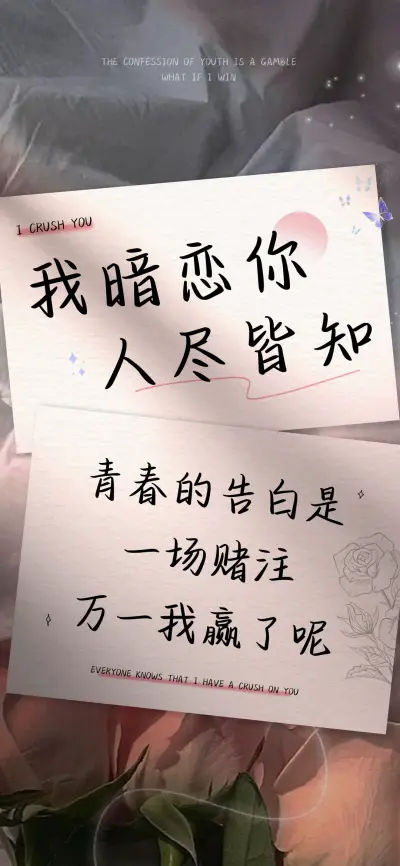 THE CONFESSION OF YOUTH IS A GAMBLE
WHAT IF I WIN
I CRUSH YOU
我暗恋你
人尽皆知
青春的告白是
一场赌注
万一我赢了呢
EVERYONE KNOWS THAT I HAVE A CRUSH ON YOU